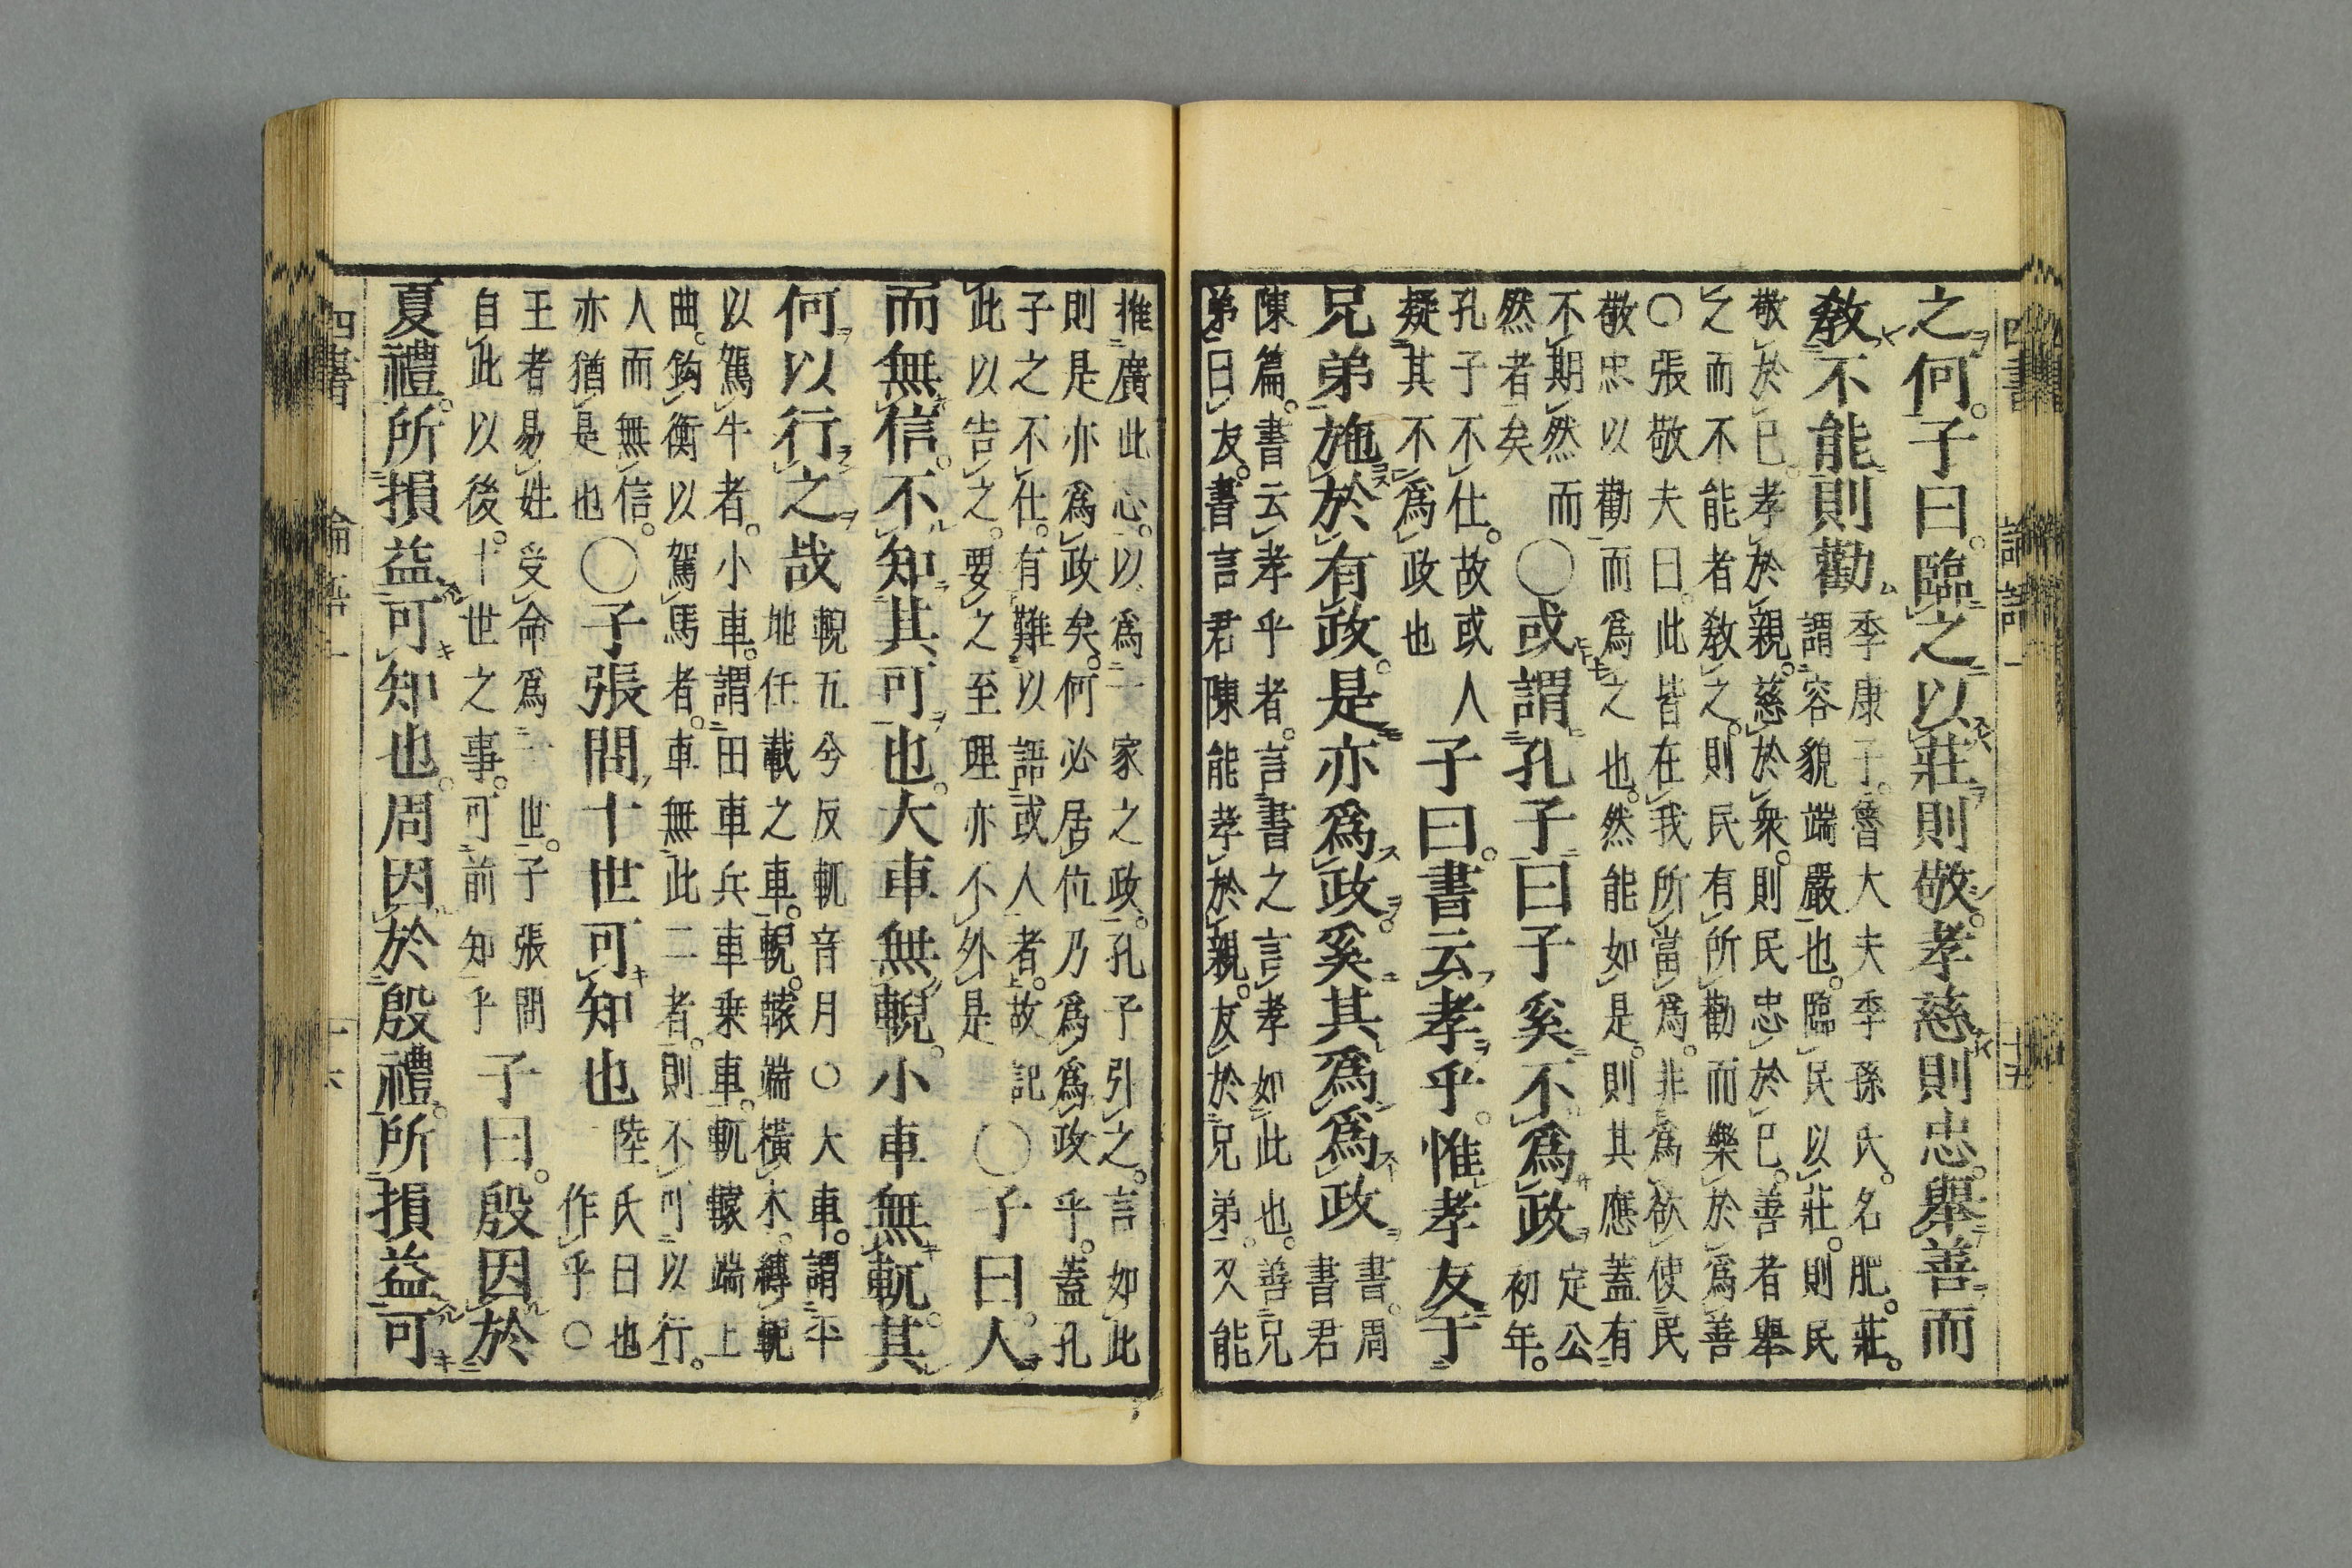 之何。子曰。臨之以莊則敬。孝慈則忠。舉善而
教不能則勸
季康子。魯大夫季孫氏。名肥。莊。
謂容貌端嚴也。臨民以莊。則民
敬於已。孝於親。慈於衆。則民忠於已。善者舉
之而不能者教之。則民有所勸而樂於爲善
○張敬夫曰。此皆在我所當爲。非爲欲使民
敬忠以勸而爲之也。然能如是。則其應蓋有
不期然而
然者矣
○或謂孔子曰子奚不爲政
定公
初年。
孔子不仕。故或人
疑其不爲政也
子曰。書云孝乎。惟孝友于
兄弟施於有政。是亦爲政。奚其爲爲政
書。周
書君
陳篇。書云孝乎者。言書之言孝如此也。善兄
弟曰友。書言君陳能孝於親。友於兄弟。又能
推廣此心。以爲一家之政。孔子引之。言如此
則是亦爲政矣。何必居位乃爲爲政乎。蓋孔
子之不仕。有難以語或人者。故記
此以告之。要之至理亦不外是
○子曰。人
而無信。不知其可也。大車無輗。小車無軏。其
何以行之哉
輗五兮反軏音月○大車。謂平
地任載之車。輗。轅端橫木。縛軛
以駕牛者。小車。謂田車兵車乗車。軏轅端上
曲。鈎衡以駕馬者。車無此二者。則不可以行。
人而無信。
亦猶是也
○子張問十世可知也
陸氏曰也
作乎○
王者易姓受命爲一世。子張問
自此以後。十世之事。可前知乎
子曰。殷因於
夏禮。所損益可知也。周因於殷禮。所損益可